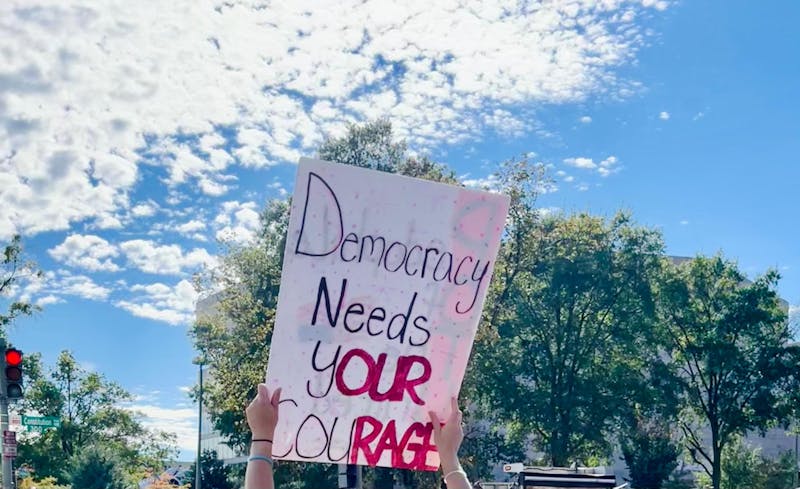 Democracy
Needs
YOUR
COURAGE
Constitution